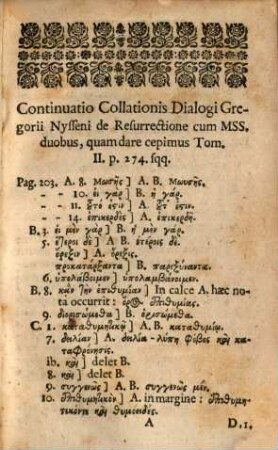 Continuatio Collationis Dialogi Gre-
gorii Nysseni de Resurrectione cum MSS.
duobus, quam dare cepimus Tom.
II. p. 274. sqq.
Pag. 203. A. 8. Μωσῆς] A. B. Μωυσῆς.
- - 10. εἰ γὰρ] B. ἦ γάρ.
- - 11. ἐστιν] A.
- - 14. ἐπικερδὲς] A. ἐπικερδῆ.
B. 3. εἰ μὲν γὰρ] B. ἦ μὲν γάρ.
5. A. B. ἑτέροις δέ.
ὄρεξιν] A. ὄρεξις.
προκατάρξαντα] B. παρεξύναντα.
6. ὑπολάβοιμεν] ὑπολαμβάνοιμεν.
B. 8. καὶ τὴν ἐπιθυμίαν] In calce A. hæc no-
ta occurrit: ἐπιθυμίας.
9. διορισώμεθα] B. ὁρισώμεθα.
C. 1. καταθυμητικὴ] A. B. καταθυμίᾳ.
7. δειλίαν] A. δειλία - λύπη φόβος καὶ κα-
ταφρόνησις.
ib. καὶ] delet B.
8. καὶ] delet B.
9. συγγενῶς] A. B. συγγενῶς μέν.
10. ἐπιθυμητικὸν] A. in margine: ἐπιθυμη-
τικόν τι καὶ θυμοειδές.
A D. 1.